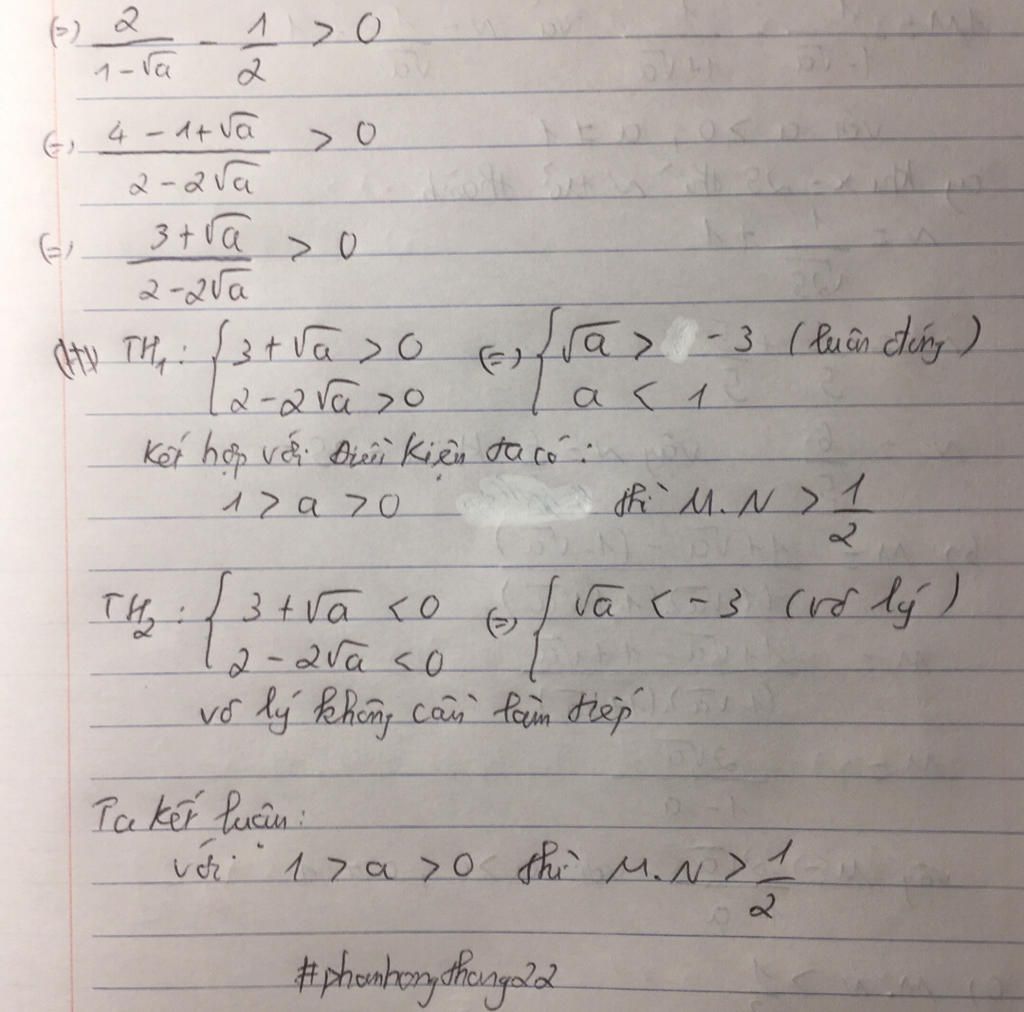 (=) 2/(1-√a) - 1/2 > 0
(=) (4 - 1 + √a)/(2 - 2√a) > 0
(=) (3 + √a)/(2 - 2√a) > 0
TH₁: { 3 + √a > 0 (=) { √a > -3 (luôn đúng)
2 - 2√a > 0 a < 1
Kết hợp với Điều kiện ta có:
1 > a > 0 thì M.N > 1/2
TH₂: { 3 + √a < 0 (=) { √a < -3 (vô lý)
2 - 2√a < 0
vô lý không cần làm tiếp
Ta kết luận:
với 1 > a > 0 thì M.N > 1/2
#phanhongthang22